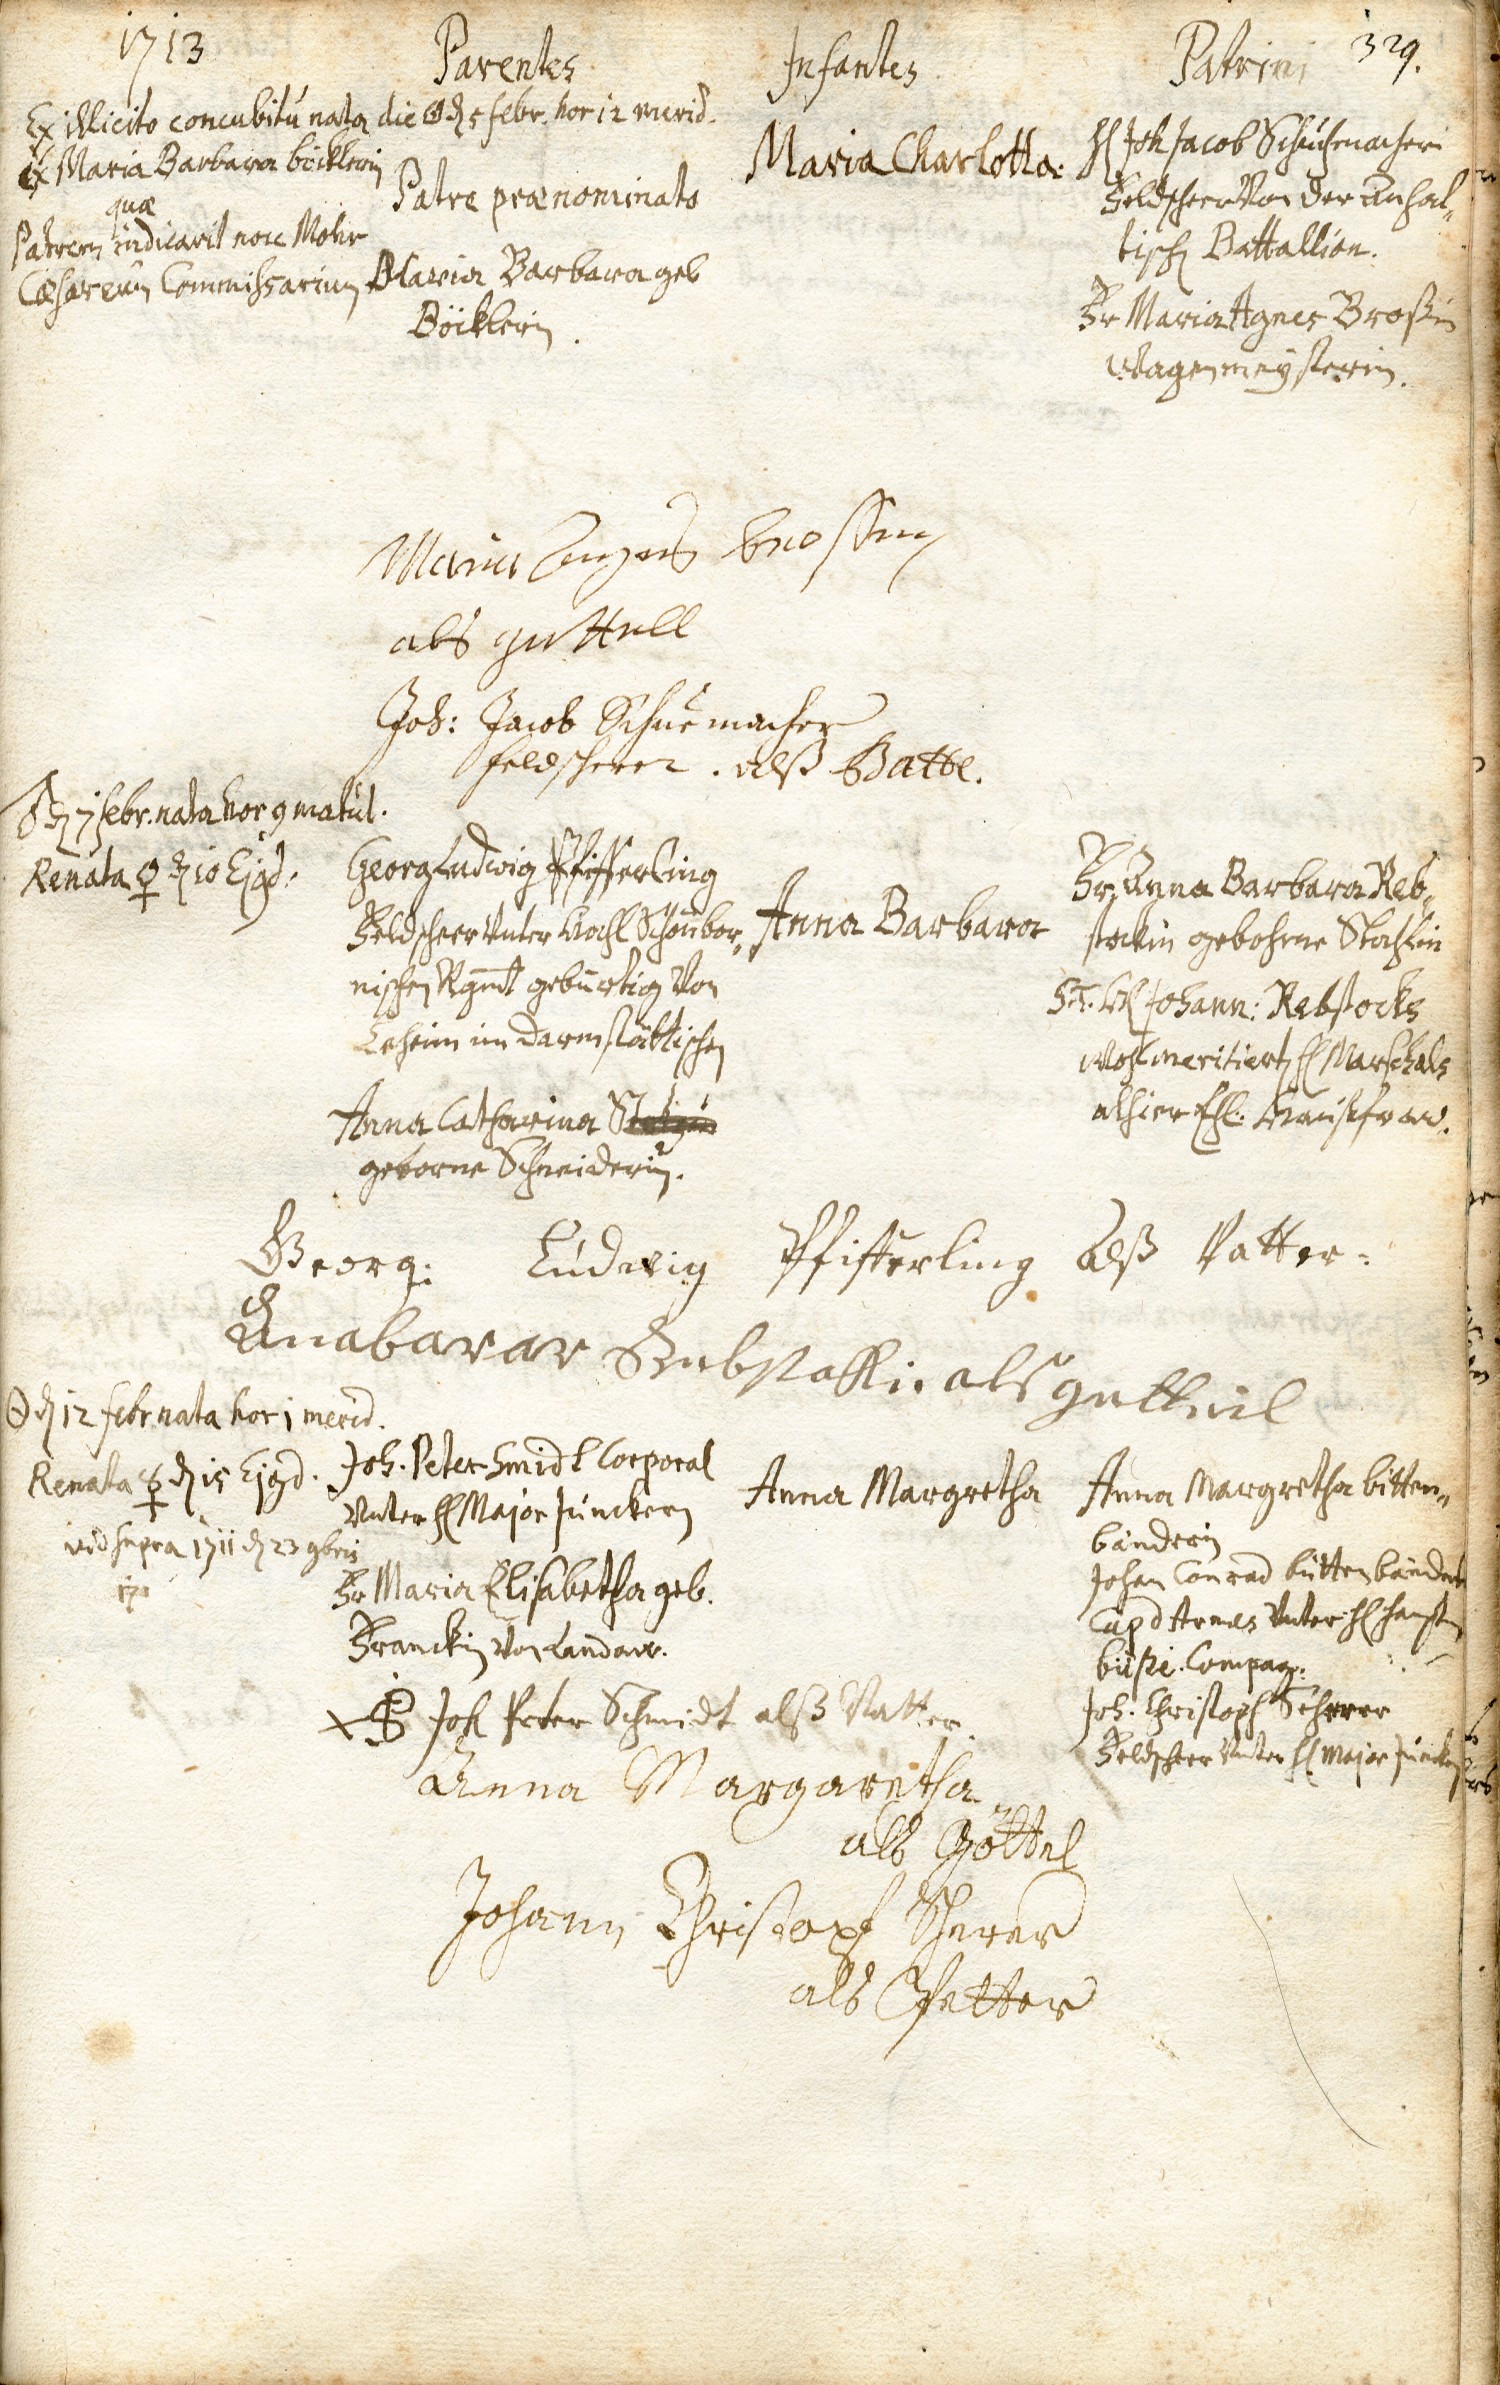 1713 Parentes Infantes Patrini 329.
Ex illicito concubitu nata die ☉ d 5 febr. hor 12 merid.
ex Maria Barbara böcklerin
quæ
Patrem indicavit noe Mohr
Cæsareum Commissarium
Patre prænominato
Maria Barbara geb
Böcklerin.
Maria Charlotta.
H Joh Jacob Schuhmacher
Feldscheer Von der Anhal„
tisch Battallion.
Fr Maria Agnes Broßin
Wagenmeysterin.
Maria Angnes brossin
als guttell
Joh: Jacob Schuemacher
feldscherer. alß Batte.
♂ d 7 febr. nata hor 9 matut.
Renata ♀ d 10 Ejgd.
Georg Ludwig Pfifferling
Feldscheer Unter Schönbor„
nischen Rgmt gebürtig Von
Leheim im Darmstättischen
Anna Catharina
geborne Schneiderin.
Anna Barbara
Fr. Anna Barbara Reb„
stockin gebohrne Stahlin
Johann: Rebstocks
wohlmeritiert H Marschals
alhier Ehl. Haußfraw.
Georg: Ludwig Pfifferling Alß Vatter:
Anabarar Rebstakki. als guttheil
☉ d 12 febr. nata hor 1 merid.
Renata ☿ d 15 Ejgd.
vid supra 1711 d 23 9bris
Joh. Peter Smidt Corporal
Unter H Major Junckern
Fr Maria Elisabetha geb.
Franckin Von Landaw.
Anna Margretha
Anna Margretha bitten„
banderin
Johan Conrad büttenbänder
Cap d Armes Unter H
Compag:
Joh. Christoph Scherer
Feldscheer Unter H Major Junckern
Joh Peter Schmidt alß Vatter.
Anna Margaretha
als Göttel
Johann Christopf Scherer
als Petter